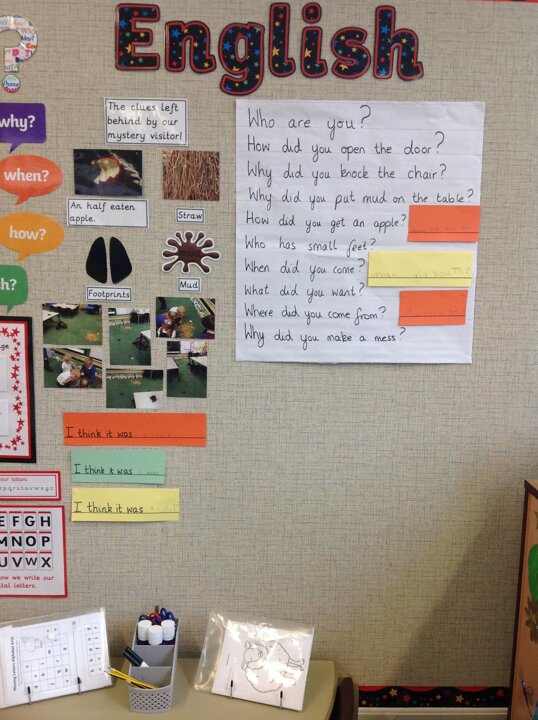 English
why?
when?
how?
The clues left
behind by our
mystery visitor!
An half eaten
apple.
Straw
Footprints
Mud
I think it was
I think it was
I think it was
Who are you?
How did you open the door?
Why did you knock the chair?
Why did you put mud on the table?
How did you get an apple?
Who has small feet?
When did you come?
What did you want?
Where did you come from?
Why did you make a mess?
your letters
EFGH
MNOP
UVWX
how we write our
capital letters.